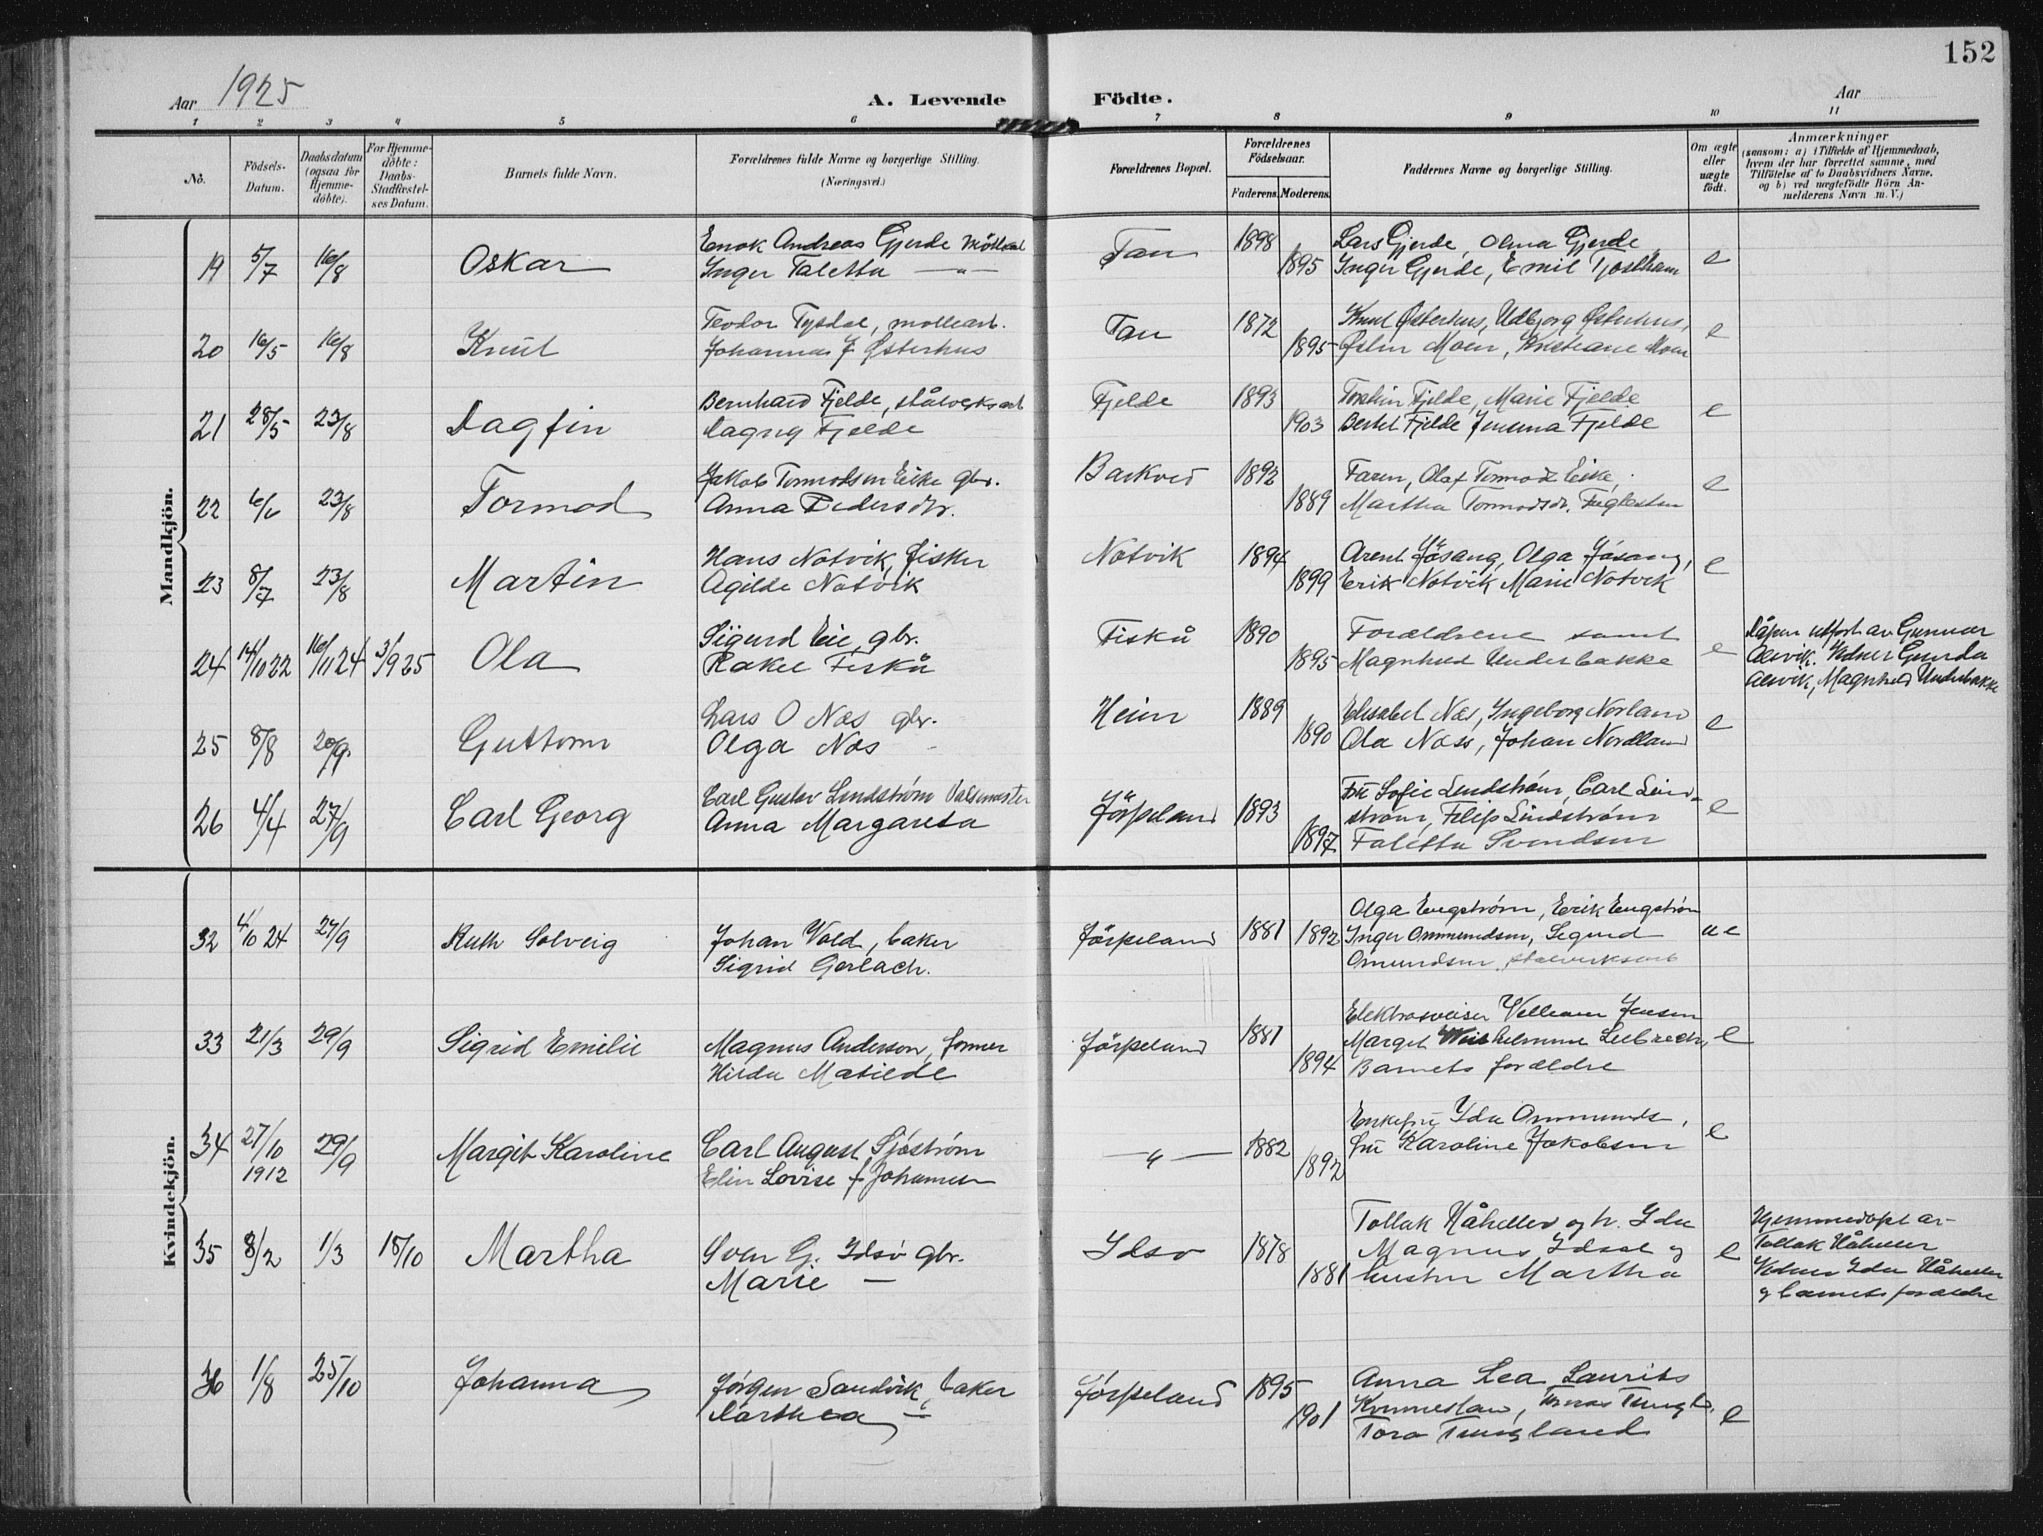 152
Aar 1925
A. Levende Födte.
Aar
1 2 3 4 5 6 7 8 9 10 11
No.
Födsels-Datum.
Daabsdatum (ogsaa for Hjemme-döbte).
For Hjemme-döbte: Daabs-Stadfæstel-ses Datum.
Barnets fulde Navn.
Forældrenes fulde Navne og borgerlige Stilling. (Næringsvei.)
Forældrenes Bopæl.
Forældrenes Födselsaar.
Faderens. Moderens.
Faddernes Navne og borgerlige Stilling.
Om ægte eller uægte födt.
Anmærkninger
(saasom: a) i Tilfælde af Hjemmedaab, hvem der har forrettet samme, med Tilföielse af to Daabsvidners Navne, og b) ved uægtefödte Börn An-melderens Navn m. V.)
Mandkjön.
19 5/7 16/8 Oskar
Enok Andreas Gjerde
Inger Taletta —"—
Tau 1898 1895
Lars Gjerde, Olma Gjerde
Inger Gjerde, Emil Tjostheim
e
20 16/5 16/8 Knut
Teodor Tysdal, møllearb.
Johanna f Østerhus
Tau 1872 1895
Knut Østerhus, Udbjørg Østerhus,
Moen, Kristiane Moen
e
21 28/5 23/8 Dagfin
Bernhard Fjelde, stålverksarb
Dagny Fjelde
Fjelde 1893 1903
Torkin Fjelde, Marie Fjelde
Bertel Fjelde Jensina Fjelde
e
22 6/6 23/8 Tormod
Jakob Tormodsen Eike gbr.
Anna Pedersdtr.
Barkved 1892 1889
Faren, Olaf Tormods Eike,
Martha Tormodsdr. Fuglestein
e
23 8/7 23/8 Martin
Hans Notvik, fisker
Agilde Notvik
Notvik 1894 1899
Arent Jøsang, Olga Jøsang,
Erik Notvik Marie Notvik
e
24 14/10 22 16/11 24 3/9 25 Ola
Sigurd Eie, gbr.
Rakel Fiskå
Fiskå 1890 1895
Forældrene samt
Magnhild Underbakke
e
Dåpen utført av Gunnar
Alsvik. Vidner Gunda
Alsvik, Magnhild Underbakke
25 8/8 20/9 Guttorm
Lars O Næs gbr.
Olga Næs
Heien 1889 1890
Elisabet Næs, Ingeborg Norland
Ola Næss, Johan Nordland
e
26 4/4 27/9 Carl Georg
Carl Gustav Lindstrøm Valsemester
Anna Margareta
Jörpeland 1893 1897
Fru Sofie Lindstrøm, Carl Lind-
strøm, Filip Lindstrøm
Taletta Svendsen
e
Kvindekjön.
32 4/10 24 27/9 Ruth Solveig
Johan Vold, baker
Sigrid Gerlach.
Jörpeland 1881 1892
Olga Engstrøm, Erik Engstrøm
Inger Ommundsen, Sigurd
Omundsen, stålverksarb
ue
33 21/3 29/9 Sigrid Emilie
Magnus Anderson, former
Hilda Matilde
Jörpeland 1881 1894
Elektrosveiser Velleam Jensen
Margit Wilhelmine
Barnets forældre
e
34 27/10 1912 29/9 Margit Karoline
Carl August Sjöström
Elin Lovise f Johansen
—"— 1882 1892
Enkefru Ida Ommunds.
fru Karoline Jakobsen
e
35 8/2 1/3 18/10 Martha
Sven G. Idsö gbr.
Marie —
Idsö 1878 1881
Tollak Håheller og h. Ida
Magnus Idsal og
hustru Martha
e
Hjemmedöpt av
Tollak Håheller
Vidner Ida Håheller
og barnets forældre
36 1/8 25/10 Johanna
Jörgen Sandvik, baker
Darthea —"—
Jörpeland 1895 1901
Anna Lea Laurits
Kvammesland, Tungl.
Tora Tungland
e